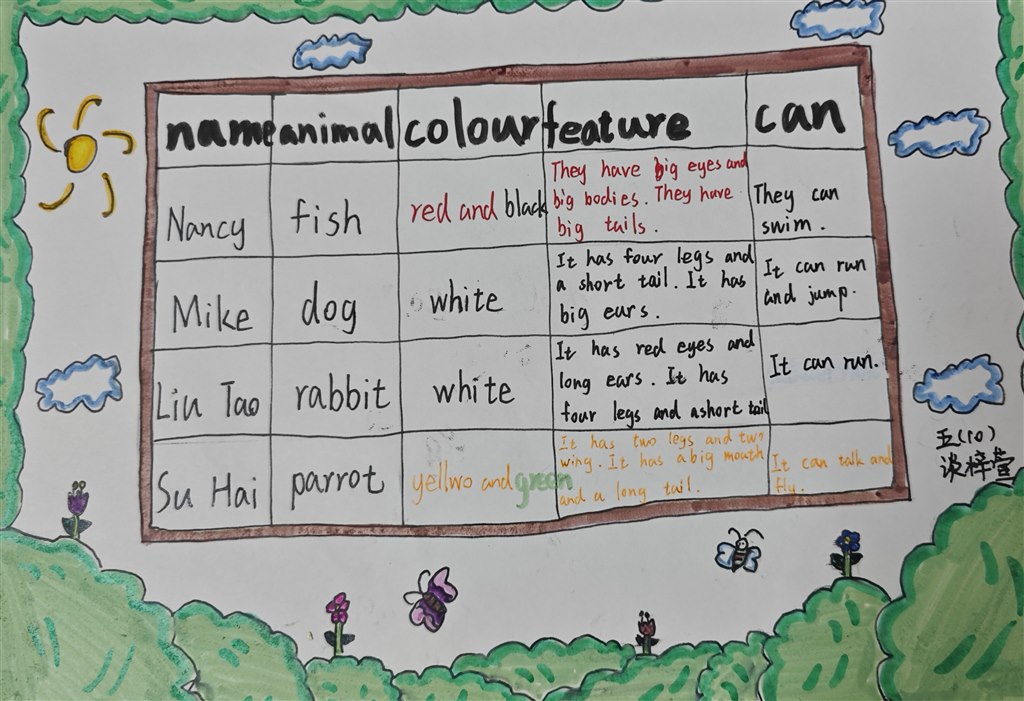 name animal colour feature can
Nancy fish red and black They have big eyes and
big bodies. They have
big tails.
They can
swim.
Mike dog white It has four legs and
a short tail. It has
big ears.
It can run
and jump.
Liu Tao rabbit white It has red eyes and
long ears. It has
four legs and ashort tail
It can run.
Su Hai parrot yellwo and green It has two legs and two
wing. It has a big mouth
and a long tail.
It can talk and
fly.
五(10)
梓萱